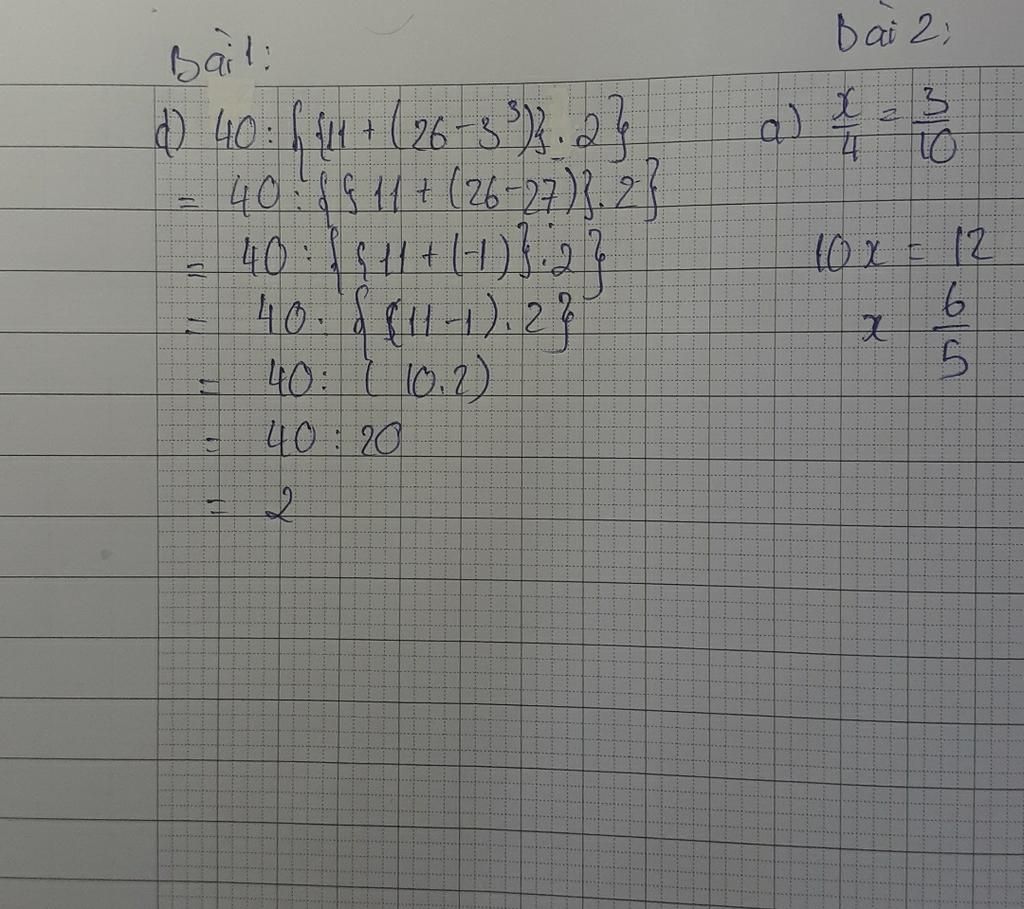 Bài 1:
d) 40 : { {11 + (26 - 3³)} . 2}
= 40 : { { 11 + (26 - 27)} . 2}
= 40 : { { 11 + (-1)} . 2 }
= 40 : { (11 - 1) . 2}
= 40 : ( 10.2)
= 40 : 20
= 2
Bài 2:
a) x/4 = 3/10
10x = 12
x 6/5